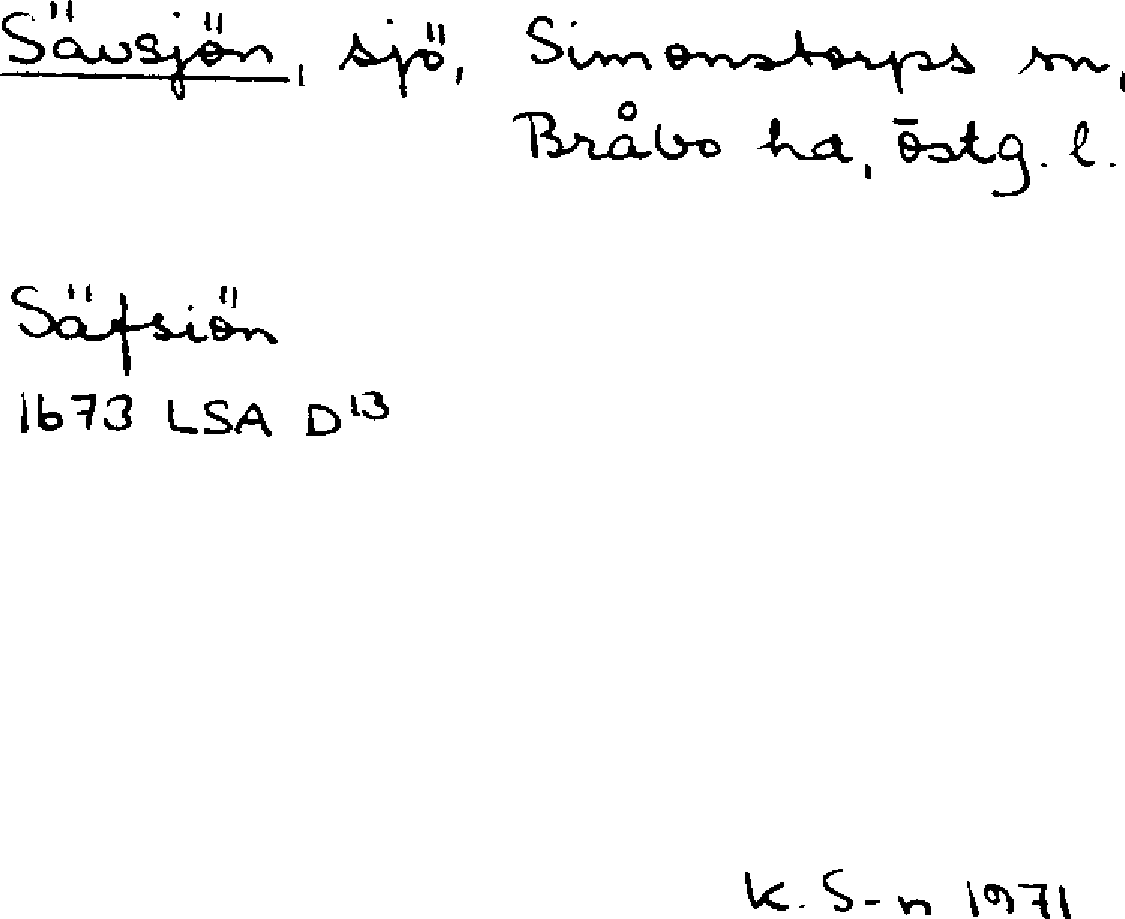 Sävsjön, sjö, Simonstorps sn,
Bråbo hd, Östg. l.
Säfsiön
1673 LSA D13
K. S-n 1971